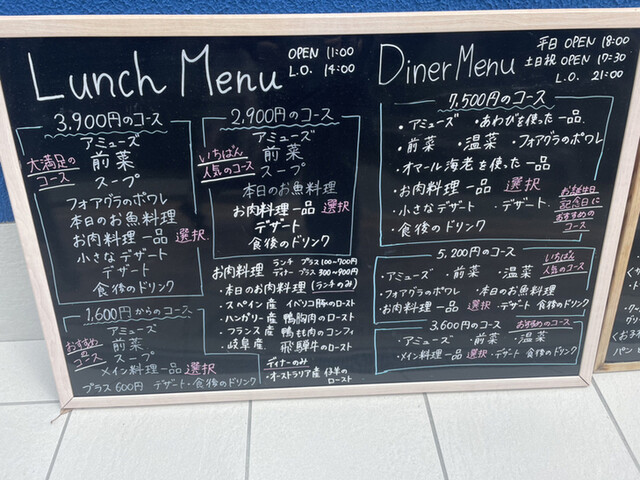 Lunch Menu
OPEN 11:00
L.O. 14:00
3,900円のコース
大満足の
コース
アミューズ
前菜
スープ
フォアグラのポワレ
本日のお魚料理
お肉料理一品 選択
小さなデザート
デザート
食後のドリンク
1,600円からのコース
おすすめ
コース
アミューズ
前菜
スープ
メイン料理一品 選択
プラス600円 デザート・食後のドリンク
2,900円のコース
いちばん
人気のコース
アミューズ
前菜
スープ
本日のお魚料理
お肉料理一品 選択
デザート
食後のドリンク
お肉料理 ランチ プラス100~700円
ディナー プラス300~900円
・本日のお肉料理(ランチのみ)
・スペイン産 イベリコ豚のロースト
・ハンガリー産 鴨胸肉のロースト
・フランス産 鴨もも肉のコンフィ
・岐阜産 飛騨牛のロースト
ディナーのみ
・オーストラリア産 仔羊の
ロースト
Diner Menu
平日 OPEN 18:00
土日祝 OPEN 17:30
L.O. 21:00
7,500円のコース
・アミューズ ・あわびを使った一品
・前菜 ・温菜 ・フォアグラのポワレ
・オマール海老を使った一品
・お肉料理一品 選択
・小さなデザート ・デザート
・食後のドリンク
お誕生日
記念日に
おすすめの
コース
5,200円のコース
いちばん
人気のコース
・アミューズ ・前菜 ・温菜
・フォアグラのポワレ ・本日のお魚料理
・お肉料理一品 選択 ・デザート 食後のドリンク
3,600円のコース おすすめのコース
・アミューズ ・前菜 ・温菜
・メイン料理一品 選択 ・デザート 食後のドリンク
パン